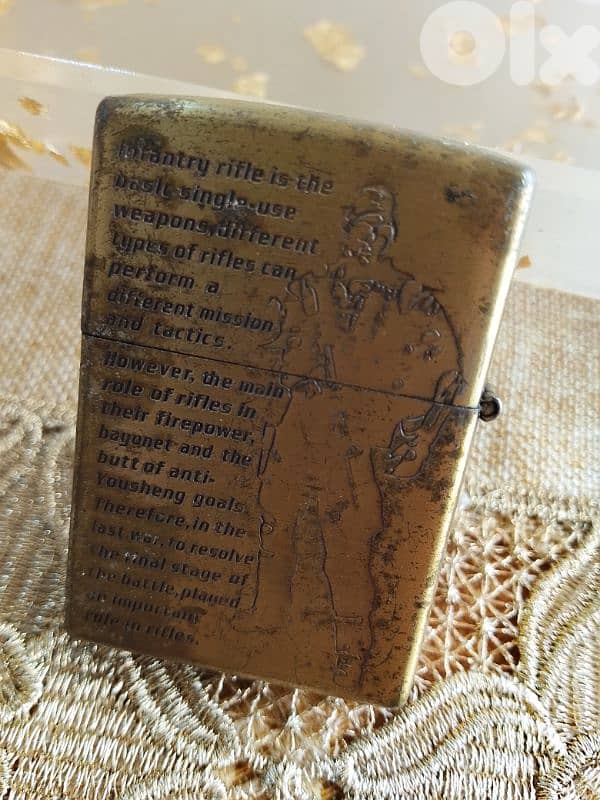 olx
Infantry rifle is the
basic single-use
weapons,different
types of rifles can
perform a
different mission
and tactics.
However, the main
role of rifles in
their firepower,
bayonet and the
butt of anti-
Yousheng goals.
Therefore, in the
last war, to resolve
the final stage of
the battle, played
an important
role in rifles.